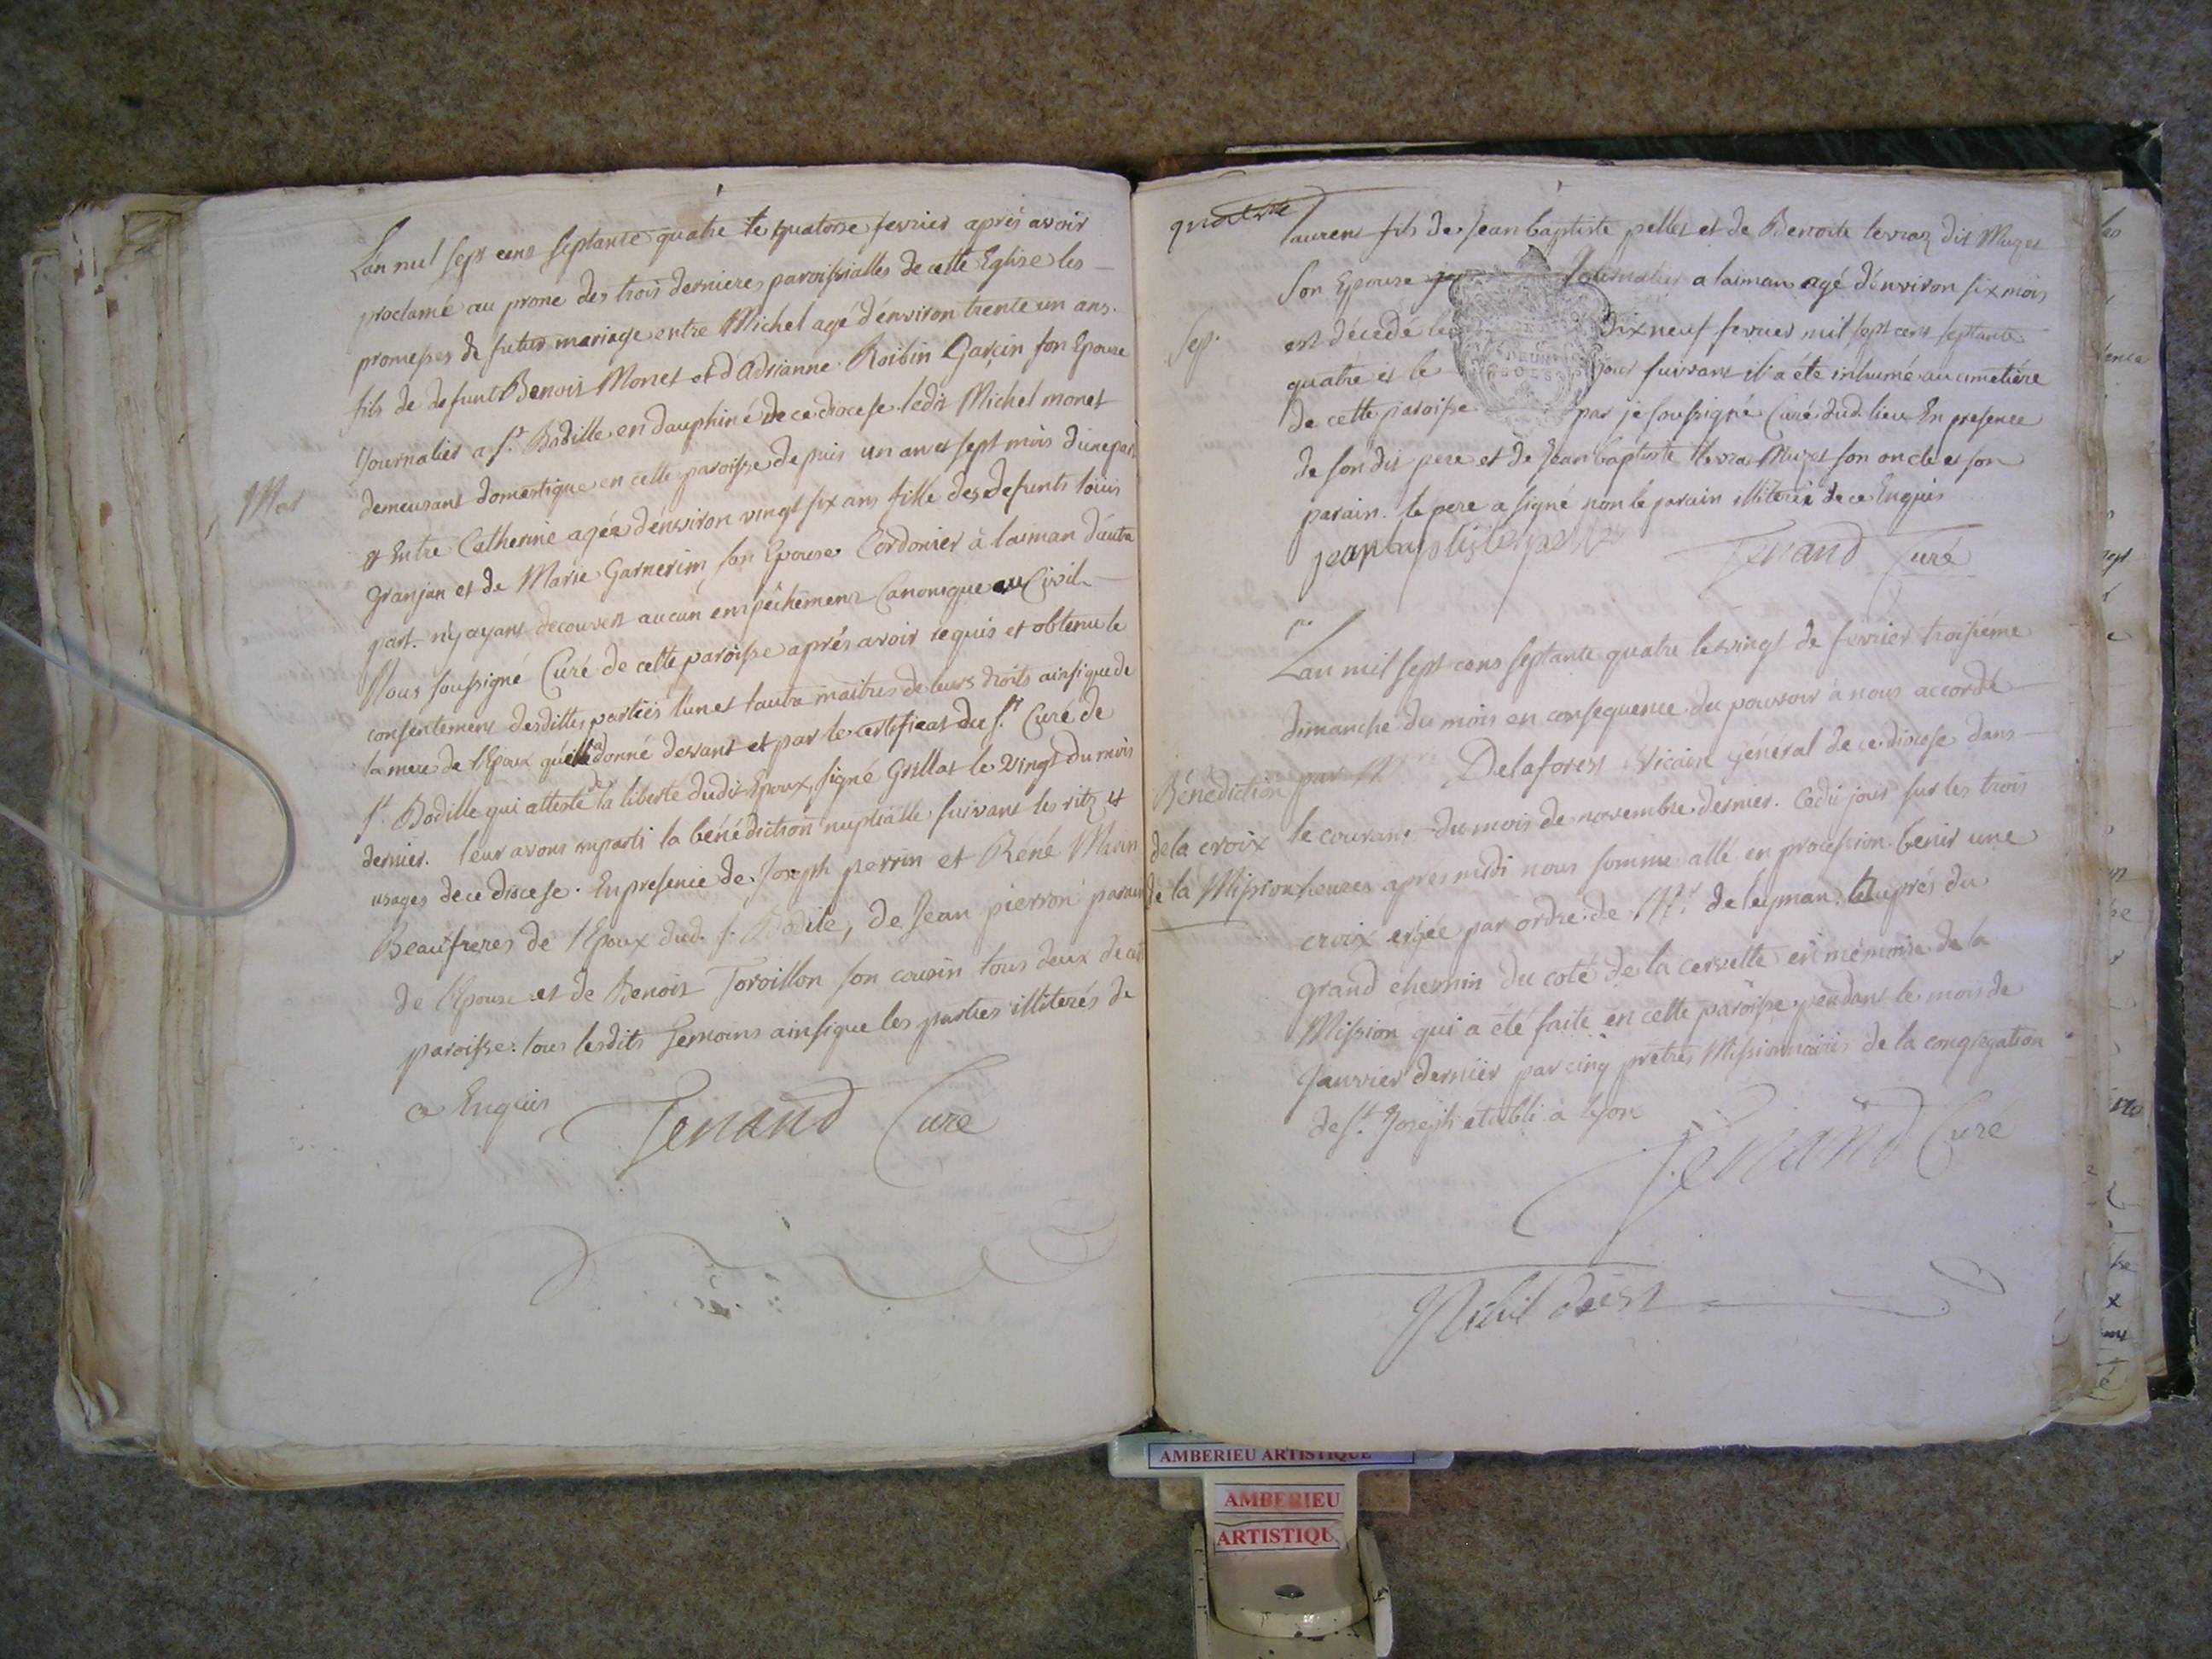 L'an mil sept cens septante quatre le quatorse fevrier aprés avoir
proclamé au prone des trois dernieres paroissialles de cette Eglise les
promesses de futur mariage entre Michel agé d'environ trente un ans.
fils de defunt Benoit Monet et d'Adrianne Roibin Garçin son Epouse
Journalier a st. Badille en dauphiné de ce diocese. ledit Michel monet
Mar
demeurant domestique en cette paroisse depuis un an et sept mois d'une part
& Entre Catherine agée d'environ vingt six ans fille des defunts loüis
Granjan et de Marie Garnerim son Epouse Cordonier à laiman d'autre
part. n'y ayant decouvert aucun empêchement Canonique ou Civil
Nous soussigné Curé de cette paroisse aprés avoir requis et obtenu le
consentement desdittes parties l'un et l'autre maitres de leurs droits ainsi que de
la mere de l'Epoux qu'elle a donné devant et par le certificat du sr. Curé de
st. Badille qui atteste de la liberté dudit Epoux, signé Grillat le vingt du mois
dernier. leur avons imparti la bénédiction nuptialle suivant les ritz et
usages de ce diocese. En presence de Joseph perrin et Réné Marin
Beaufreres de l'Epoux dud. st. Badile, de Jean pierron parain
de l'Epouse et de Benoit Tovoillon son cousin tous deux de cette
paroisse. tous lesdits temoins ainsi que les parties illiterés de
ce Enquis
Tenand Curé
laurent fils de Jean baptiste pellet et de Benoite levraz dit Muzet
son Epouse Journalier a laiman agé d'environ six mois
Sep.
est décédé le dix neuf fevrier mil sept cens septante
quatre et le jour suivant il a été inhumé au cimetière
de cette paroisse par je soussigné Curé dud. lieu En presence
de son dit pere et de Jean baptiste levra Muzet son oncle et son
parain. le pere a signé non le parain illiteré de ce Enquis
jean baptiste pellet
Tenand Curé
L'an mil sept cens septante quatre le vingt de fevrier troisiéme
dimanche du mois en consequence du pouvoir à nous accordé
Bénédiction
de la croix
de la Mission
par Mr. Delaforest Vicaire général de ce diocese dans
le courant du mois de novembre dernier. Cedit jour sur les trois
heures apres midi nous somme allé en procession benir une
croix erijée par ordre de Mr. de leyman auprés du
grand chemin du coté de la cervette en mémoire de la
Mission qui a été faite en cette paroisse pendant le mois de
Janvier dernier par cinq prêtres Missionnaires de la congregation
de st. Joseph établi à lyon
Tenand Curé
Nihil deest
AMBERIEU ARTISTIQUE
AMBERIEU
ARTISTIQU